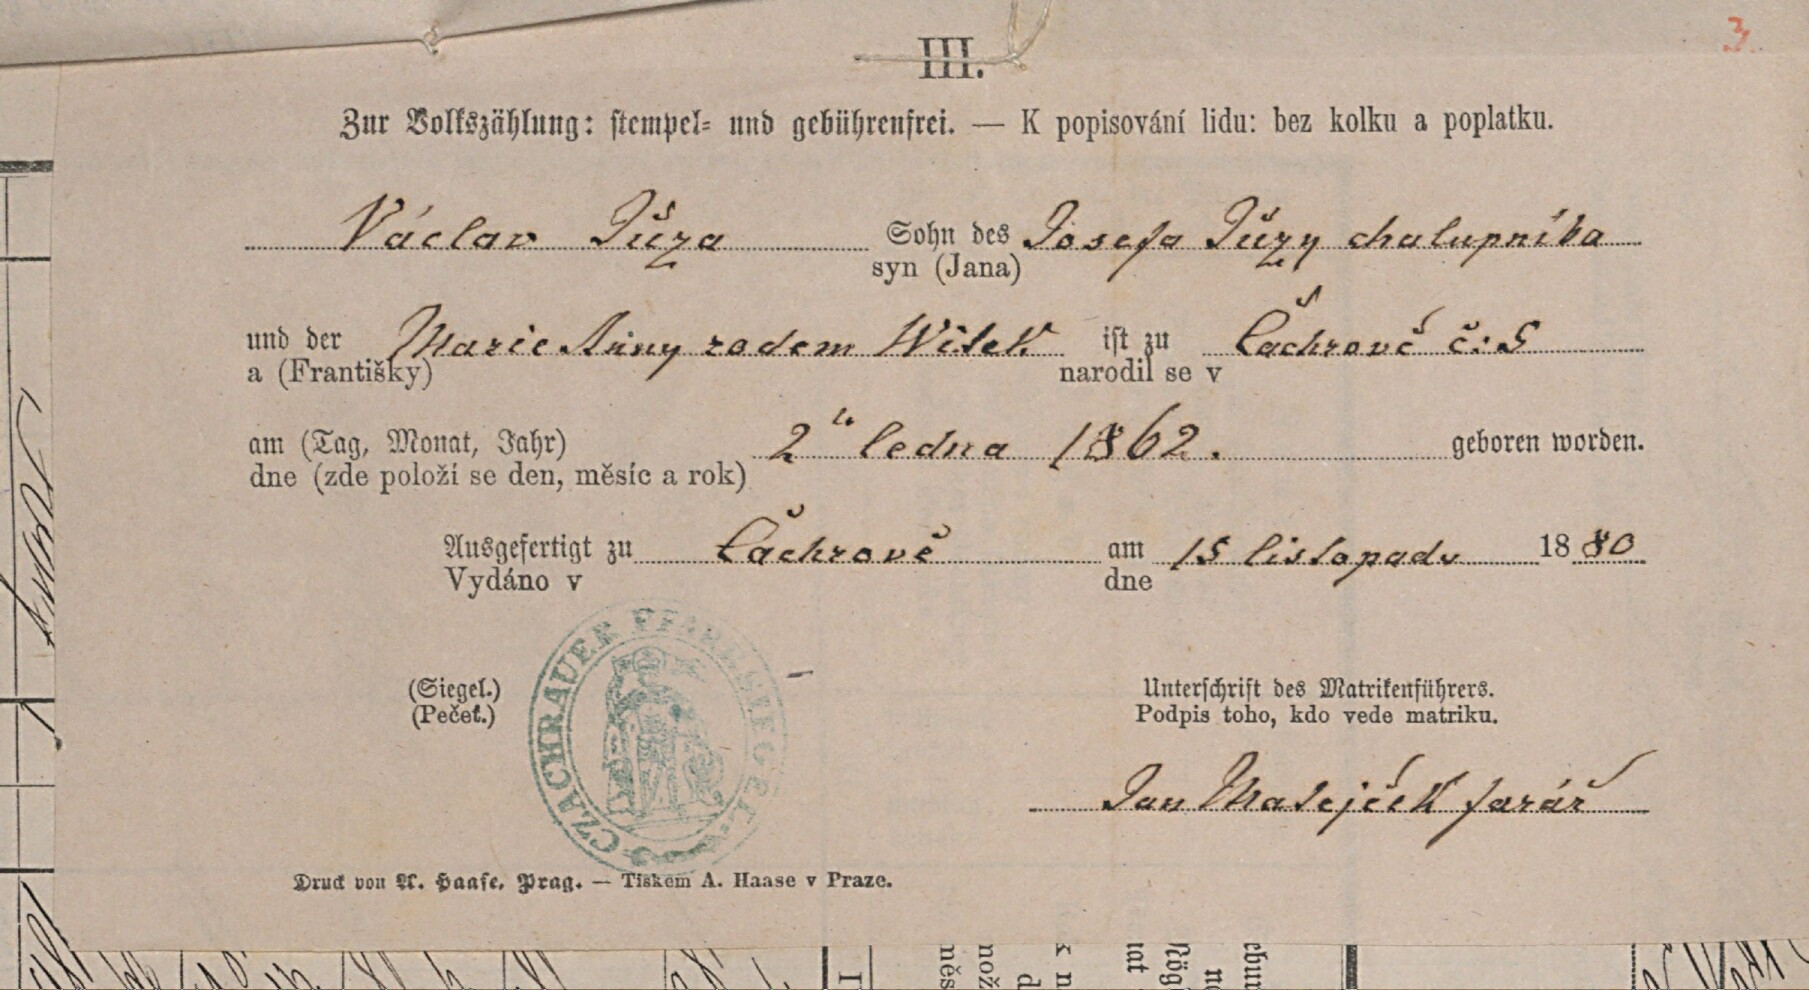 3.
III.
Zur Volkszählung: stempel- und gebührenfrei. — K popisování lidu: bez kolku a poplatku.
Václav Jůza Sohn des Josefa Jůzy chalupníka
syn (Jana)
und der Marie Anny rodem Witek ist zu Čachrově č: 5
a (Františky) narodil se v
am (Tag, Monat, Jahr) 2ho ledna 1862. geboren worden.
dne (zde položí se den, měsíc a rok)
Ausgefertigt zu Čachrově am 15 listopadu 1880
Vydáno v dne
CZACHRAUER PFARRSIEGEL
(Siegel.) Unterschrift des Matrikenführers.
(Pečeť.) Podpis toho, kdo vede matriku.
Jan Matějček farář
Druck von A. Haase, Prag. — Tiskem A. Haase v Praze.